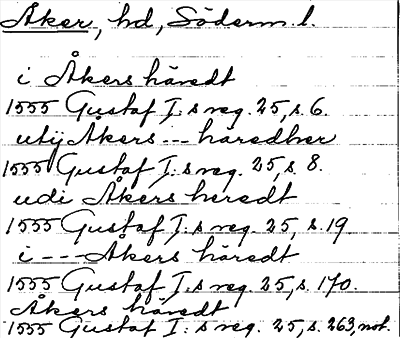 Åker, hd, Söderm. l.
i Åkers häredt
1555 Gustaf I:s reg. 25, s. 6.
utij Åkers --- häredher
1555 Gustaf I:s reg. 25, s. 8.
udi Åkers heredt
1555 Gustaf I:s reg. 25, s. 19
i --- Åkers häredt
1555 Gustaf I:s reg. 25, s. 170.
Åkers häredt
1555 Gustaf I:s reg. 25, s. 263, not.